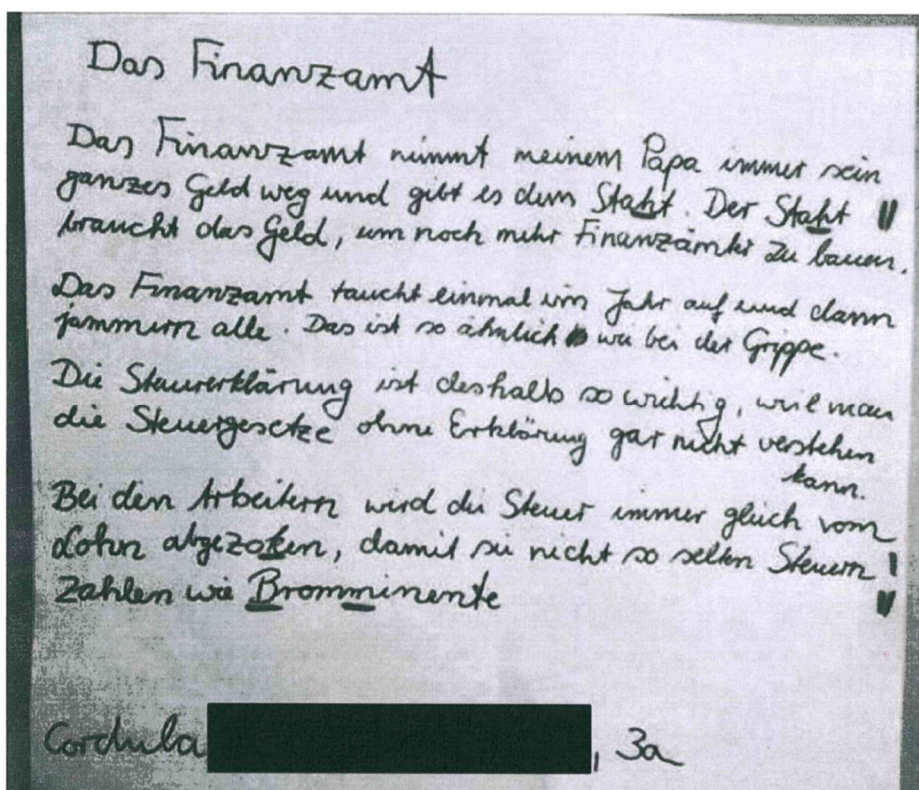 Das Finanzamt
Das Finanzamt nimmt meinem Papa immer sein
ganzes Geld weg und gibt es dem Staht. Der Staht
braucht das Geld, um noch mehr Finanzämter zu bauen.
Das Finanzamt taucht einmal im Jahr auf und dann
jammern alle. Das ist so ähnlich wie bei der Grippe.
Die Steuererklärung ist deshalb so wichtig, weil man
die Steuergesetze ohne Erklärung gar nicht verstehen
kann.
Bei den Arbeitern wird die Steuer immer gleich vom
Lohn abgezoken, damit sie nicht so selten Steuern
zahlen wie Bromminente
Cordula , 3a